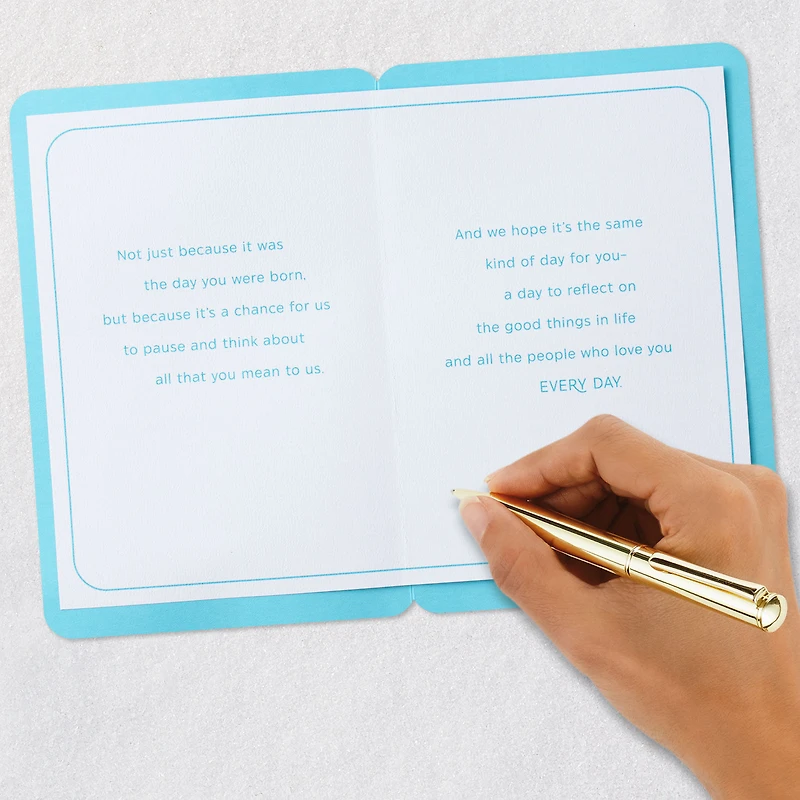 Not just because it was
the day you were born,
but because it's a chance for us
to pause and think about
all that you mean to us.
And we hope it's the same
kind of day for you–
a day to reflect on
the good things in life
and all the people who love you
EVERY DAY.